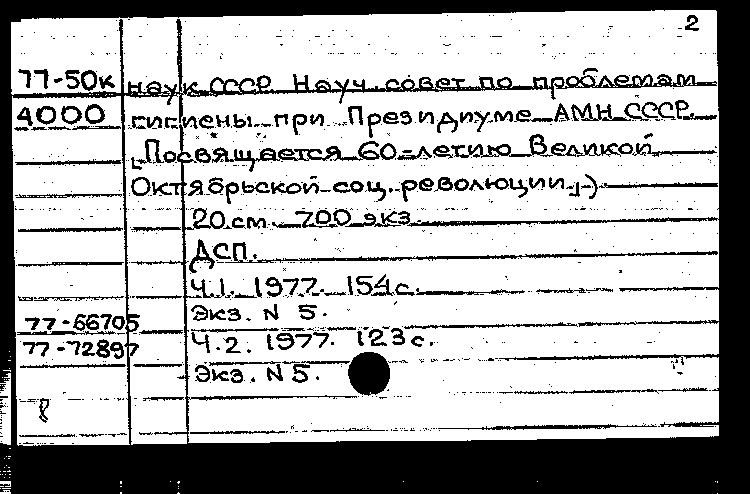 2
77-50к наук СССР. Науч. совет по проблемам
4000 гигиены при Президиуме АМН СССР.
[Посвящается 60-летию Великой
Октябрьской соц. революции].-)
20 см. 700 экз.
ДСП.
Ч.1. 1977. 154 с.
77-66705 Экз. N 5.
77-72897 Ч.2. 1977. 123 с.
Экз. N 5.